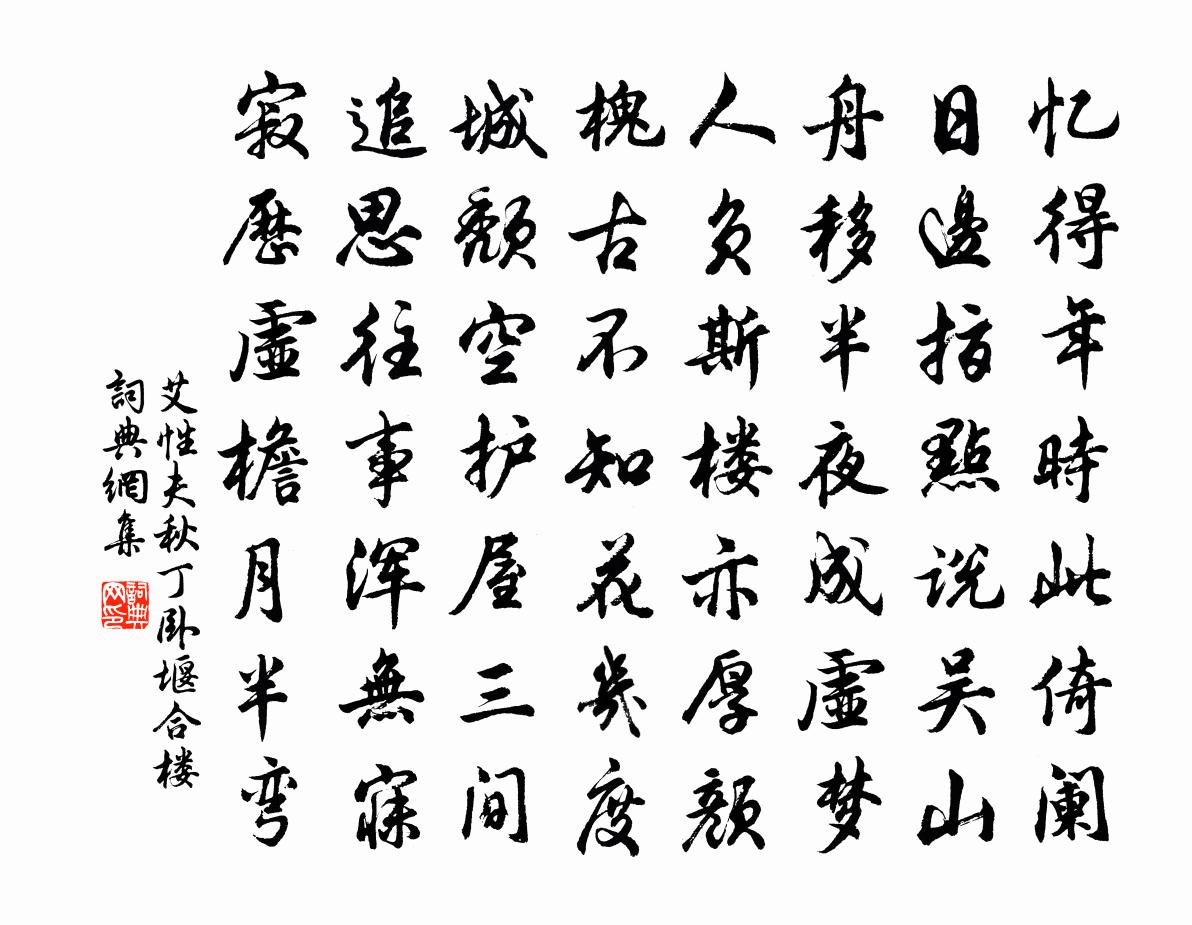 忆得年時此倚阑
日邊指點说吴山
舟移半夜成虛梦
人负斯楼亦厚颜
槐古不知花幾度
城颓空护屋三间
追思往事浑無寐
寂歷虛檐月半弯
艾性夫秋丁卧堰合楼
詞典網集
詞典网印